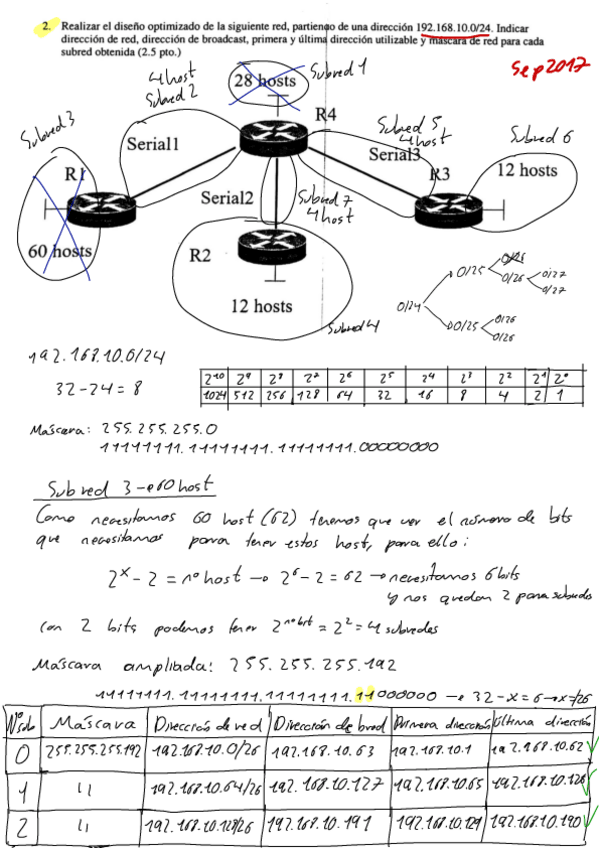 2. Realizar el diseño optimizado de la siguiente red, partiendo de una dirección 192.168.10.0/24. Indicar
dirección de red, dirección de broadcast, primera y última dirección utilizable y máscara de red para cada
subred obtenida (2.5 pto.)
Sep2017
4 host
Subred 2
28 hosts
Subred 1
Subred 3
R4
Serial1
Subred 5
4 host
Serial3
Subred 6
R1
R3
12 hosts
Serial2
Subred 7
4 host
60 hosts
R2
12 hosts
Subred 4
0/24
0/25
0/26
0/26
0/27
0/27
0/25
0/26
0/26
192.168.10.0/24
32-24 = 8
2^10 2^9 2^8 2^7 2^6 2^5 2^4 2^3 2^2 2^1 2^0
1024 512 256 128 64 32 16 8 4 2 1
Máscara: 255.255.255.0
11111111.11111111.11111111.00000000
Subred 3 → 60 host
Como necesitamos 60 host (62) tenemos que ver el número de bits
que necesitamos para tener estos host, para ello:
2^x - 2 = nº host → 2^6 - 2 = 62 → necesitamos 6 bits
y nos quedan 2 para subredes
Con 2 bits podemos tener 2^nº bit = 2^2 = 4 subredes
Máscara ampliada: 255.255.255.192
11111111.11111111.11111111.11000000 → 32-x=6 → x=/26
Nº sub Máscara Dirección de red Dirección de broad Primera dirección Última dirección
0 255.255.255.192 192.168.10.0/26 192.168.10.63 192.168.10.1 192.168.10.62 ✓
1 " 192.168.10.64/26 192.168.10.127 192.168.10.65 192.168.10.126 ✓
2 " 192.168.10.128/26 192.168.10.191 192.168.10.129 192.168.10.190 ✓